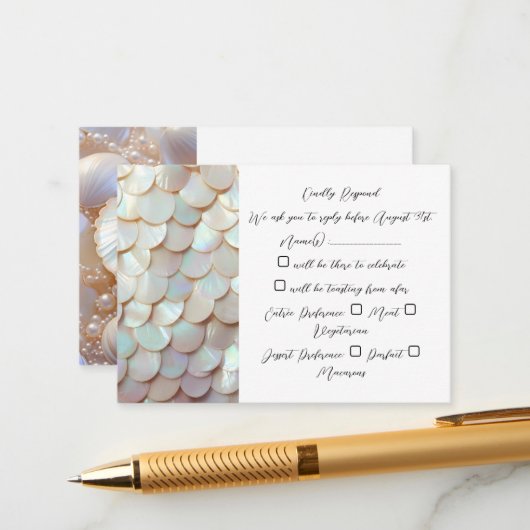 Kindly Respond
We ask you to reply before August 31st.
Name(s) :
will be there to celebrate
will be toasting from afar
Entrée Preference: Meat
Vegetarian
Dessert Preference: Parfait
Macarons